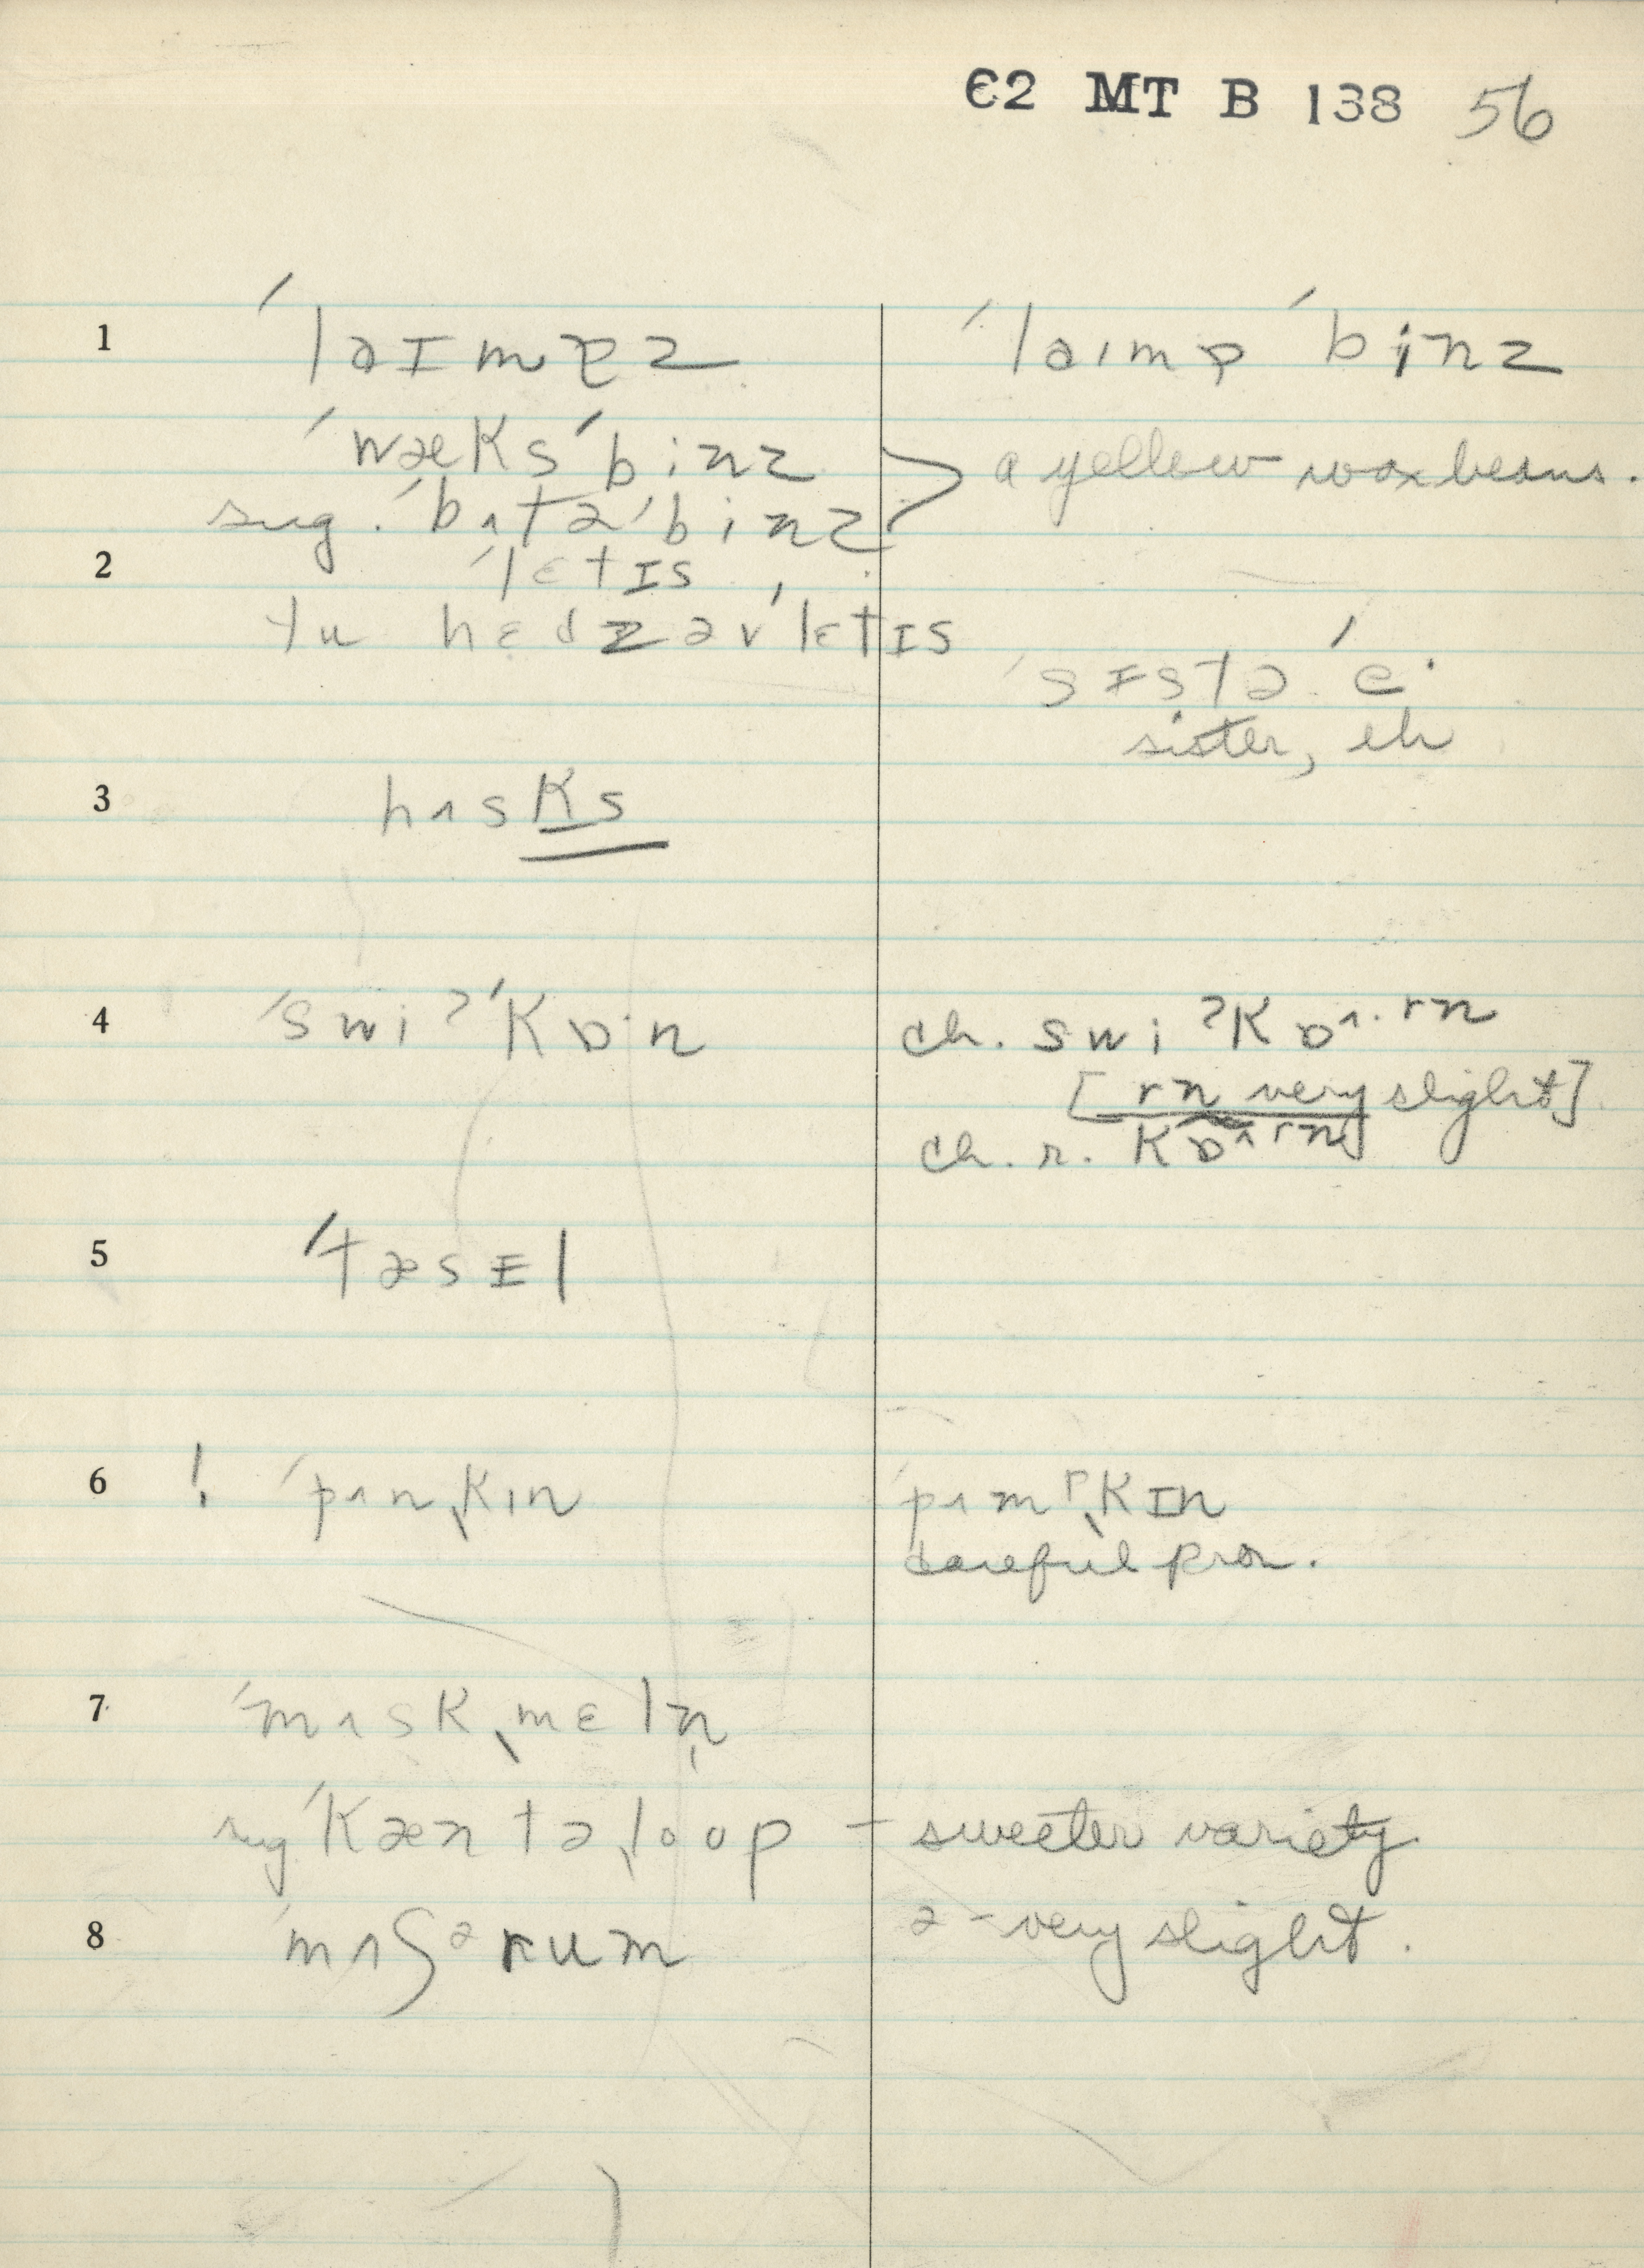 C2 MT B 138 56
1 ˈlaɪmpz ˈlaɪmp ˈbinz
ˈwæksˈbinz } a yellow wax beans.
sug. ˈbʌtəˈbinz
2 ˈlɛtɪs
tu hɛdz əvˈlɛtɪs
ˈsɪstə ˈe·
sister, eh
3 hʌsks
4 ˈswiʔˈkɒ·n ch. swiʔkɒʌ·rn
[rn very slight]
ch. r. kɒʌrn
5 ˈtæsɪl
6 ! ˈpʌnˌkɪn ˈpʌmᵖˌkɪn
careful pron.
7 ˈmʌskˌmɛln̩
sug ˈkæntəˌloop – sweeter variety
8 ˈmʌʃᵊrum ə – very slight.